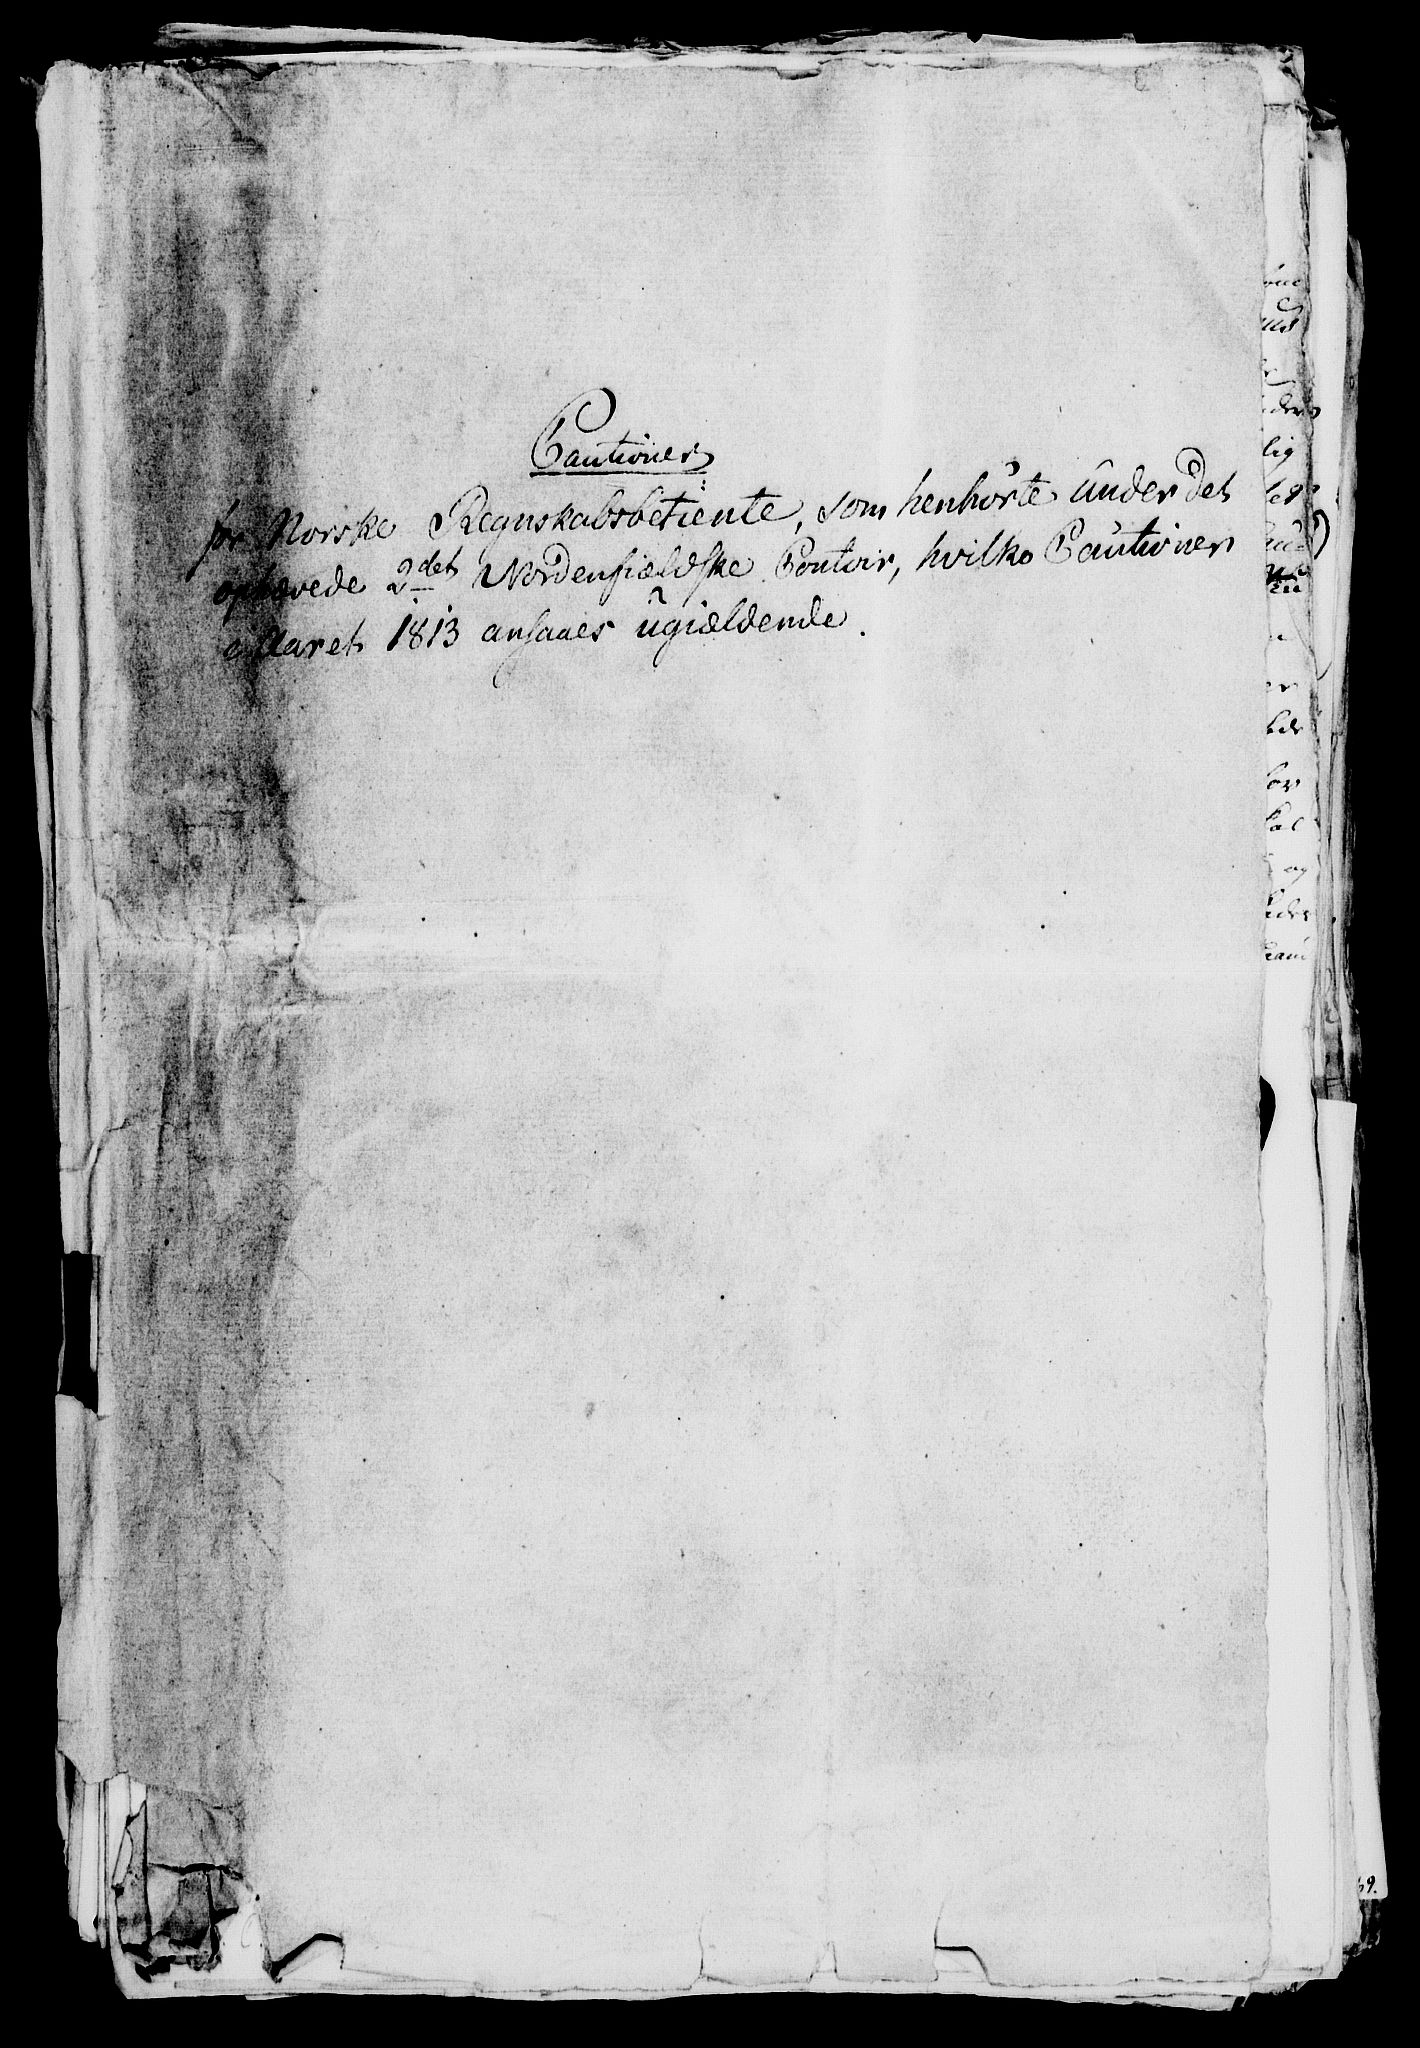 Cautioner
for Norske Regnskabsbetiente, som henhörte under det
ophævede 2det Nordenfieldske Contoir, hvilke Cautioner
i Aaret 1813 ansaaes ugieldende.
lig
og
69.